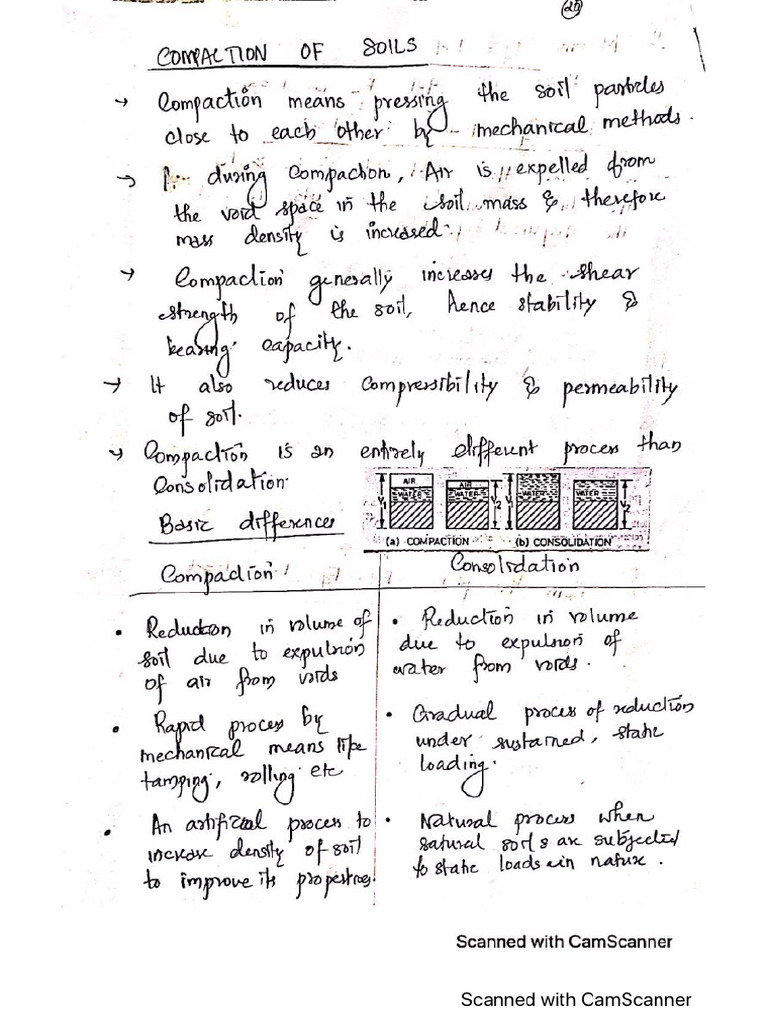 20
COMPACTION OF SOILS
→ Compaction means pressing the soil particles
close to each other by mechanical methods.
→ during Compaction, Air is expelled from
the void space in the soil mass & therefore
mass density is increased.
→ Compaction generally increases the shear
strength of the soil, hence stability &
bearing capacity.
→ It also reduces compressibility & permeability
of soil.
→ Compaction is an entirely different process than
Consolidation.
AIR
WATER
V1
AIR
WATER
V2
WATER
V1
WATER
V2
(a) COMPACTION (b) CONSOLIDATION
Basic differences
Compaction
• Reduction in volume of
soil due to expulsion
of air from voids
• Rapid process by
mechanical means like
tamping, rolling etc
• An artificial process to
increase density of soil
to improve its properties.
Consolidation
• Reduction in volume
due to expulsion of
water from voids.
• Gradual process of reduction
under sustained, static
loading.
• Natural process when
saturated soils are subjected
to static loads in nature.
Scanned with CamScanner
Scanned with CamScanner